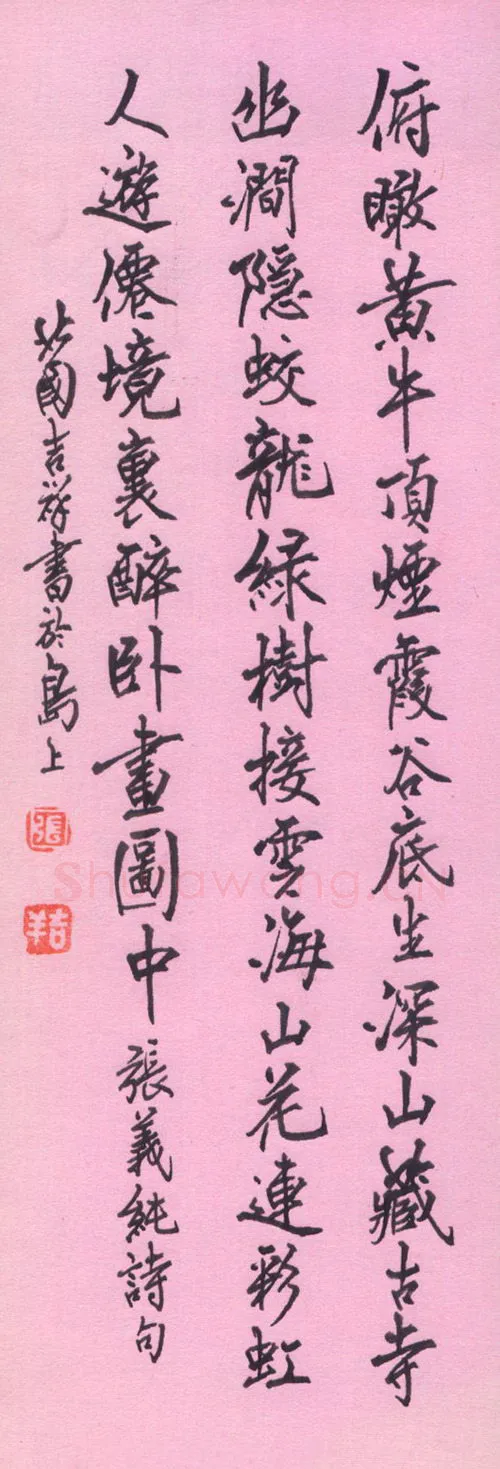 俯瞰黄牛頂煙霞谷底生深山藏古寺
幽澗隱蛟龍緑樹接雲海山花連彩虹
人遊僊境裏醉卧畫圖中張義純詩句
北國吉祥書於島上
張
吉羊
Shufawang.CN